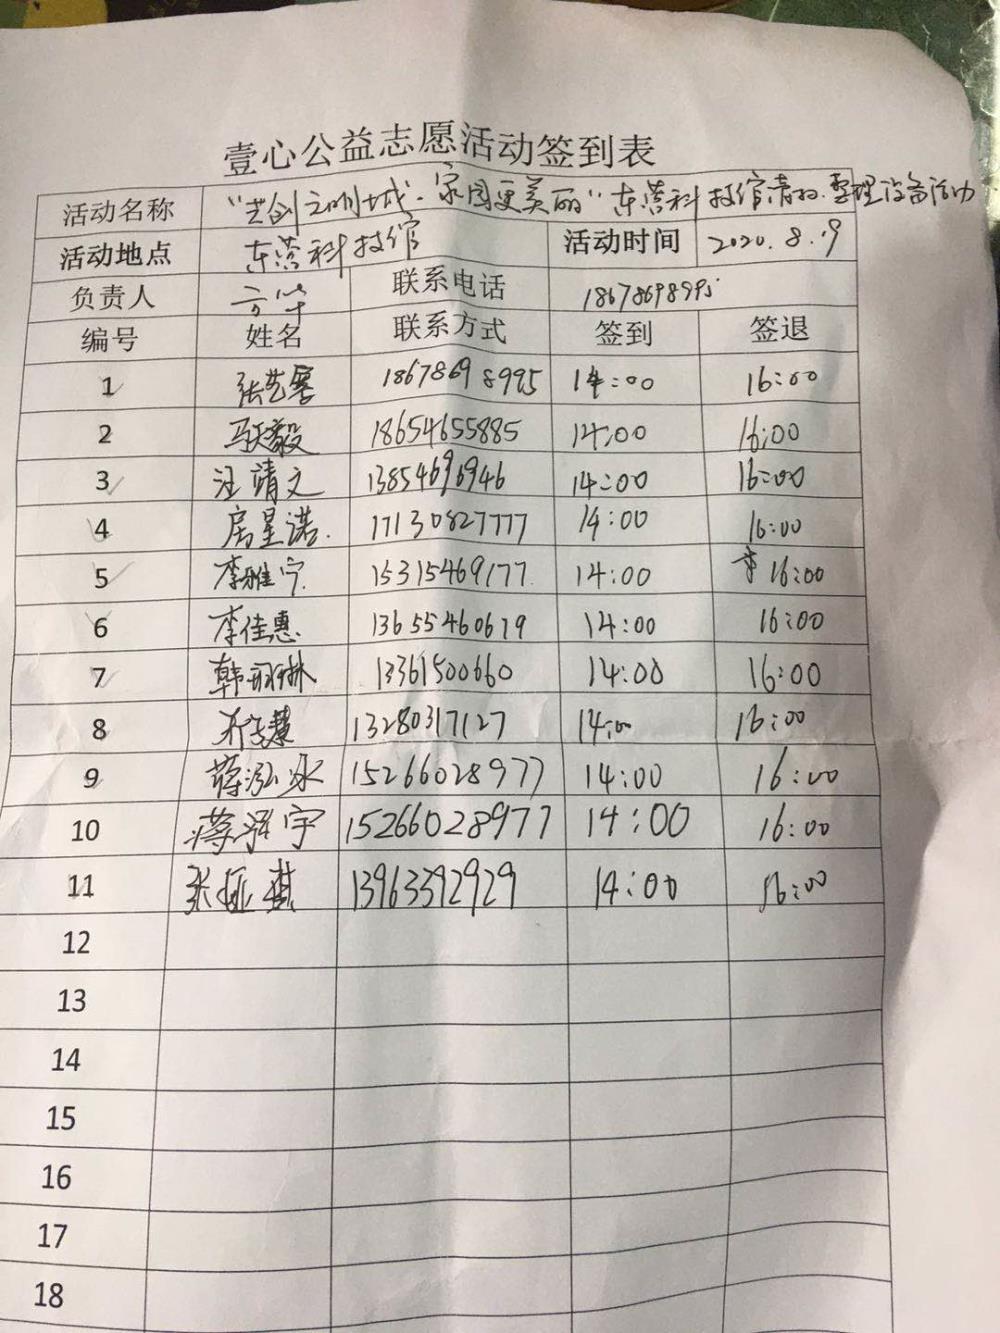 壹心公益志愿活动签到表
活动名称 "共创文明城·家园更美丽"东营科技馆清扫.整理设备活动
活动地点 东营科技馆 活动时间 2020.8.9
负责人 联系电话 18678698995
编号 姓名 联系方式 签到 签退
1 张艺馨 18678698995 14:00 16:00
2 马天毅 18654655885 14:00 16:00
3 汪靖文 13854696946 14:00 16:00
4 房星诺. 17130827777 14:00 16:00
5 李雅宁 15315469177 14:00 16:00
6 李佳惠 13655460619 14:00 16:00
7 韩 琳 13361500660 14:00 16:00
8 13280317127 14:00 16:00
9 蒋泓冰 15266028977 14:00 16:00
10 蒋泽宇 15266028977 14:00 16:00
11 13963392929 14:00 16:00
12
13
14
15
16
17
18